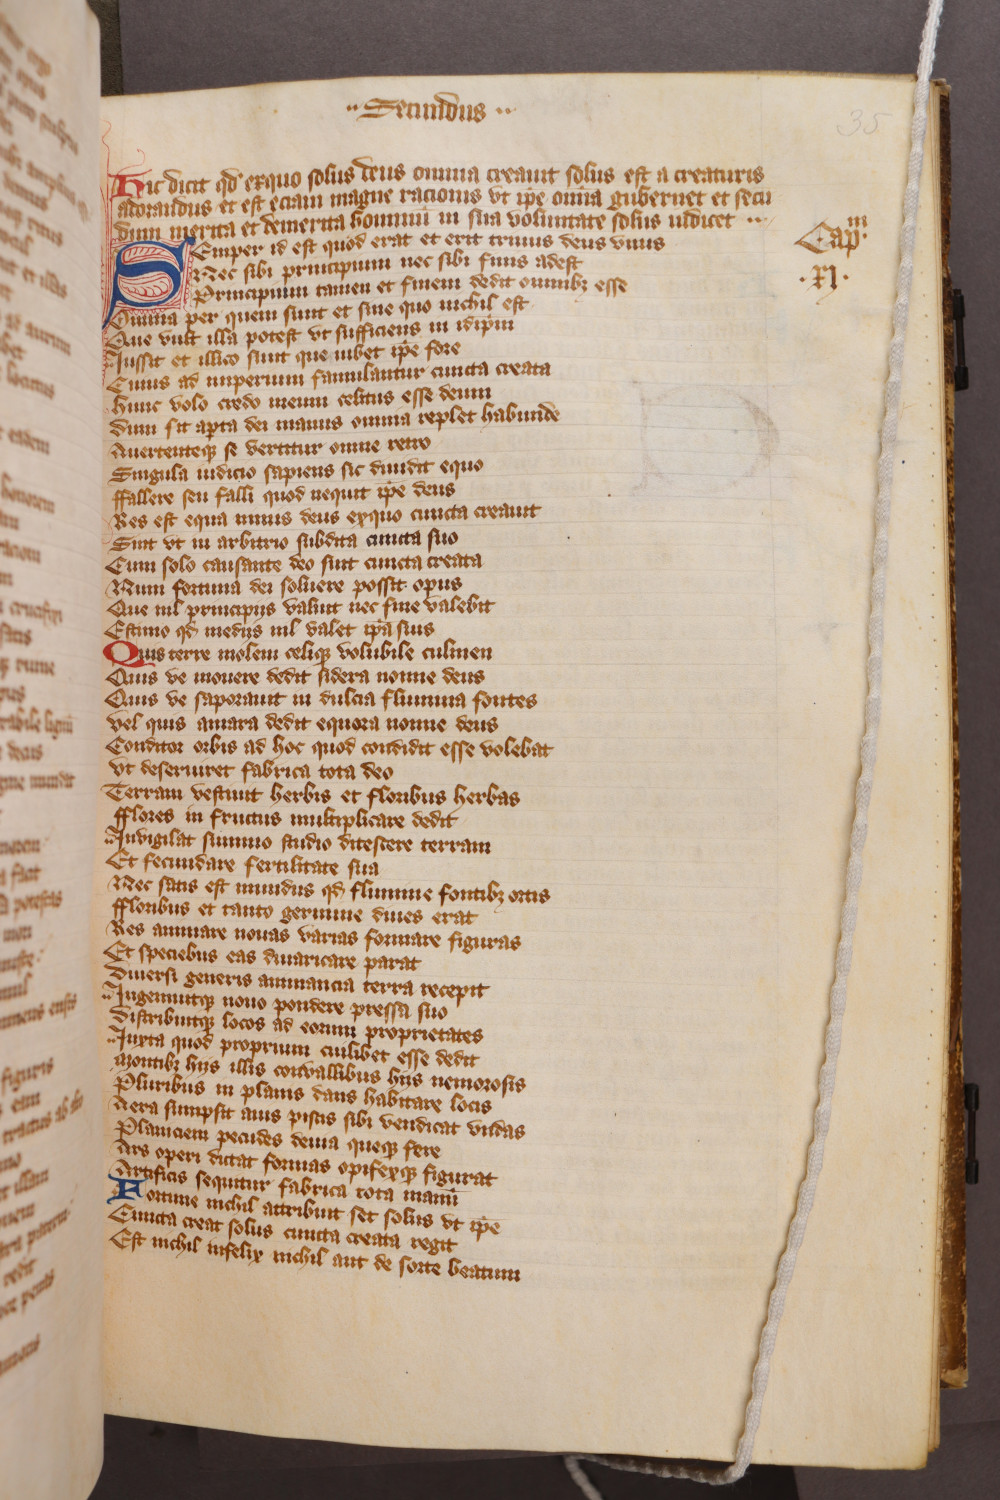 ·· Secundus ··
35
Hic dicit qd exquo solus deus omnia creauit solus est a creaturis
adorandus et est eciam magne racionis vt ipe omia gubernet et secu
dum merita et demerita hominu in sua voluntate solus iudicet ··
Capm
·XI·
Semper id est quod erat et erit trinus deus vnus
Nec sibi principium nec sibi finis adest
Principium tamen et finem dedit omnibz esse
Omnia per quem sunt et sine quo nichil est
Que vult illa potest vt sufficiens in idipm
Iussit et illico sunt que iubet ipe fore
Cuius ad imperium famulantur cuncta creata
Hunc volo credo meum celitus esse deum
Dum sit apta dei manus omnia replet habunde
Auertenteqz se vertitur omne retro
Singula iudicio sapiens sic diuidit equo
ffallere seu falli quod nequit ipe deus
Res est equa nimis deus exquo cuncta creauit
Sint vt in arbitrio subdita cuncta suo
Cum solo causante deo sint cuncta creata
Num fortuna dei soluere possit opus
Que nil principijs valuit nec fine valebit
Estimo qd medijs nil valet ipa suis
Quis terre molem celiqz volubile culmen
Quis ve mouere dedit sidera nonne deus
Quis ve saporauit in dulcia flumina fontes
Vel quis amara dedit equora nonne deus
Conditor orbis ad hoc quod condidit esse volebat
Vt deseruiret fabrica tota deo
Terram vestiuit herbis et floribus herbas
fflores in fructus multiplicare dedit
Inuigilat summo studio ditescere terram
Et fecundare fertilitate sua
Nec satis est mundus qd flumine fontibz ortis
ffloribus et tanto germine diues erat
Res animare nouas varias formare figuras
Et speciebus eas diuaricare parat
Diuersi generis animancia terra recepit
Ingemuitqz nouo pondere pressa suo
Distribuitqz locos ad eorum proprietates
Iuxta quod proprium cuilibet esse dedit
Montibz hijs illis conuallibus hijs nemorosis
Pluribus in planis dans habitare locis
Aera sumpsit auis piscis sibi vendicat vndas
Planiciem pecudes deuia queqz fere
Ars operi dictat formas opifexqz figurat
Artificis sequitur fabrica tota manu
Fortune nichil attribuit set solus vt ipe
Cuncta creat solus cuncta creata regit
Est nichil infelix nichil aut de sorte beatum